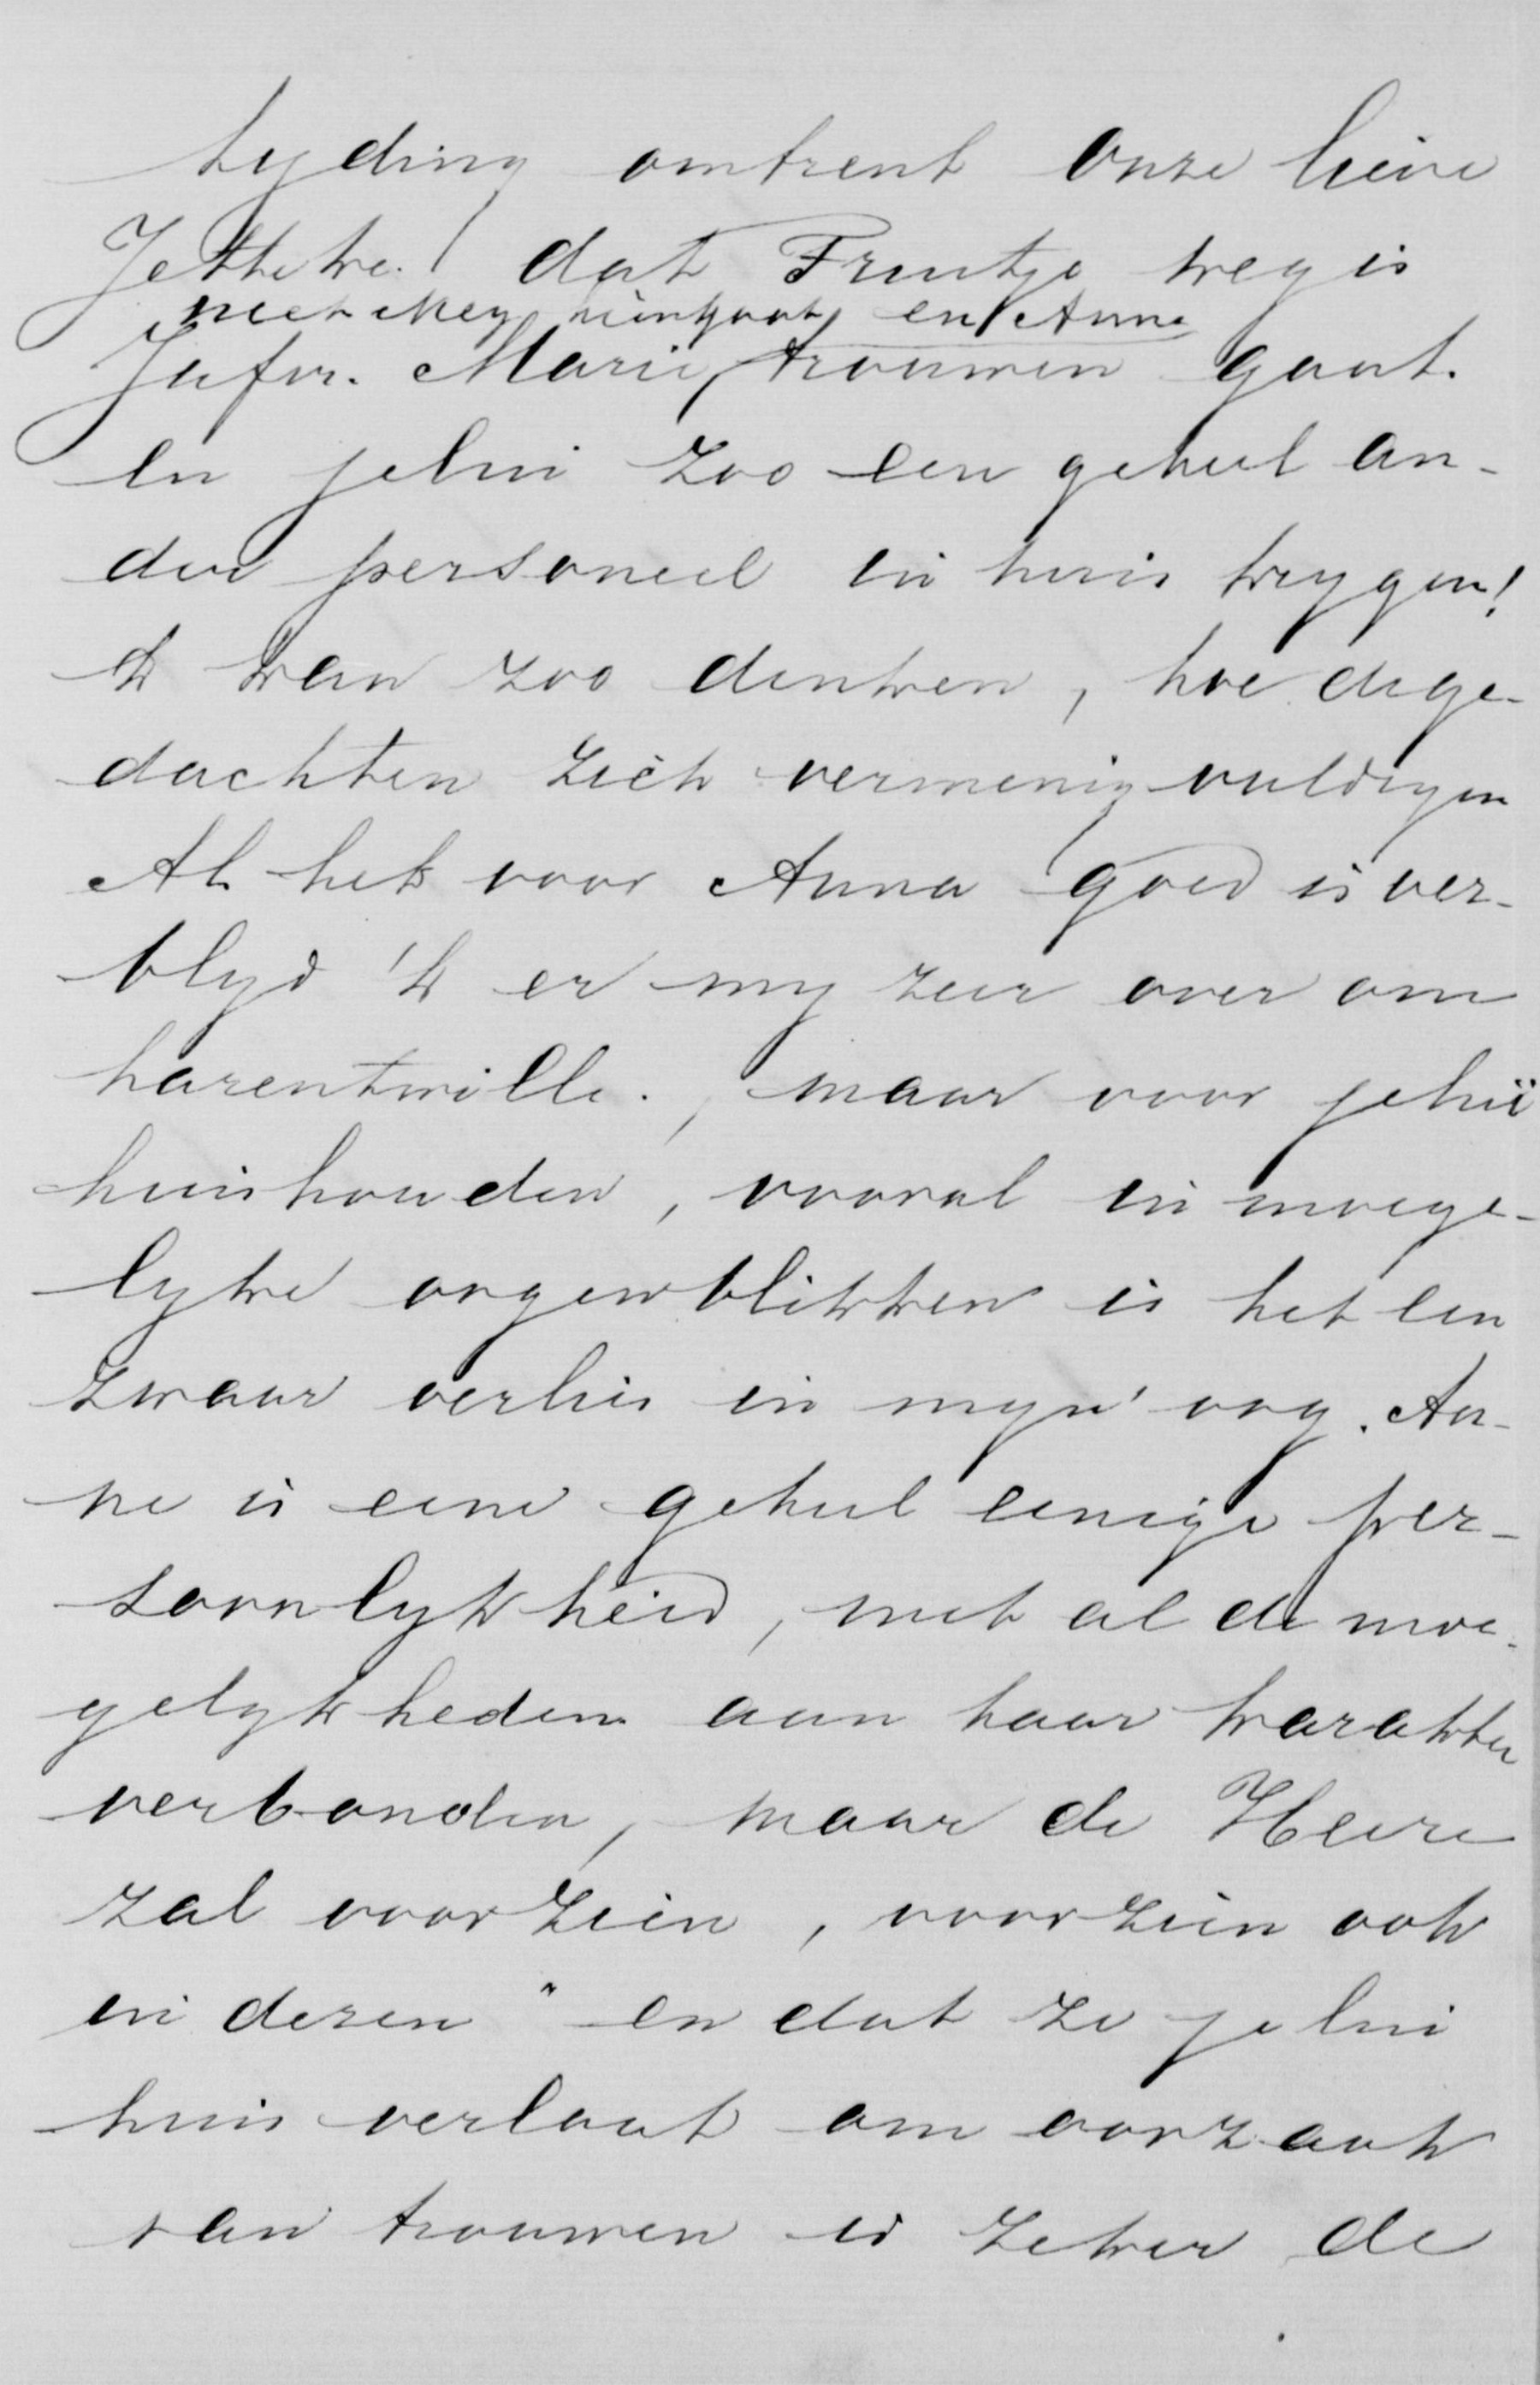 tyding omtrent onze lieve
Jetteke. dat Fruitje weg is
met Mey heengaat en Anna
Jufvr. Marie, trouwen gaat.
en jelui zoo een geheel an-
der personeel in huis krygen!
'k kan zoo denken, hoe de ge-
dachten zich vermenigvuldigen
Als het voor Anna goed is ver-
blyd 'k er my zeer over om
harentwille., maar voor jelui
huishouden, vooral in moeye-
lyke oogenblikken is het een
zwaar verlies in myn' oog. An-
na is eene geheel eenige per-
soonlykheid, met al de moe-
gelykheden aan haar karakter
verbonden, maar de Heere
zal voorzien, voorzien ook
in dezen" en dat ze jelui
huis verlaat om oorzaak
van trouwen is zeker de